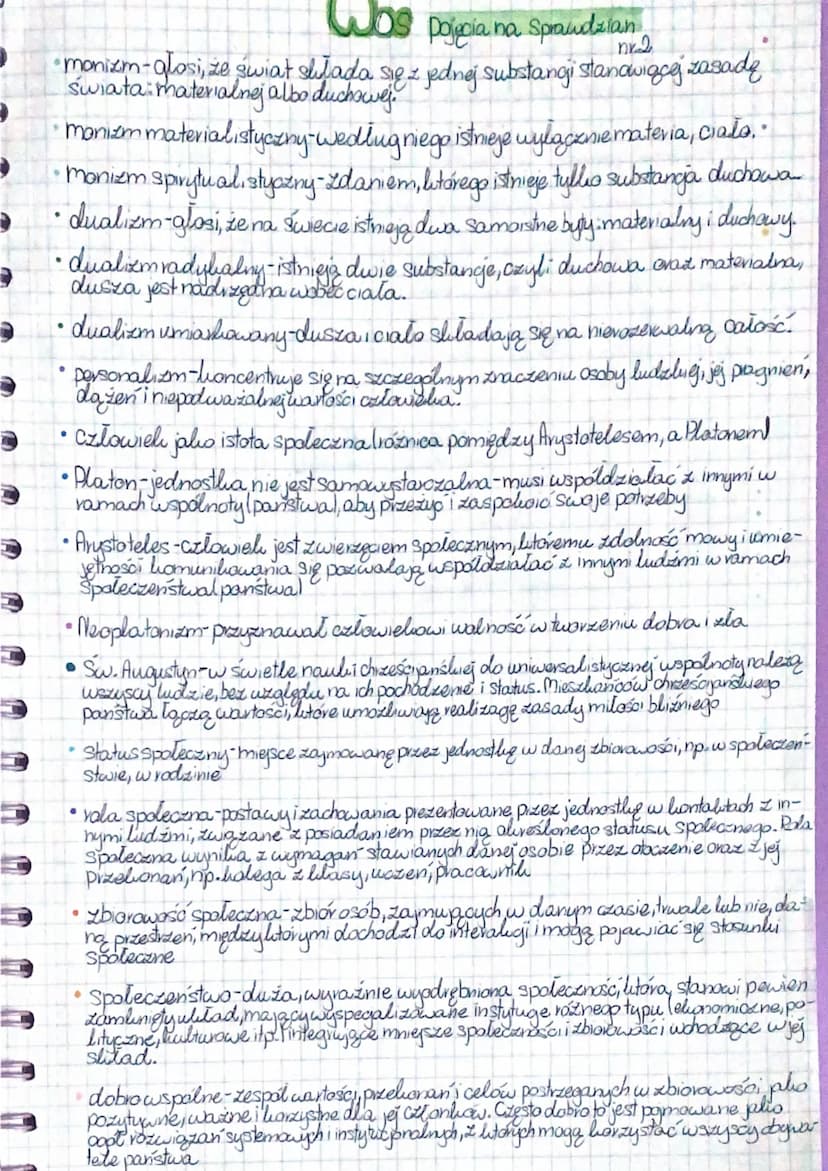 Wos Pojęcia na sprawdzian
nr.2
• monizm-głosi, że świat składa się z jednej substancji stanowiącej zasadę
świata: materialnej albo duchowej.
• monizm materialistyczny-według niego istnieje wyłącznie materia, ciało.
• monizm spirytualistyczny-zdaniem, którego istnieje tylko substancja duchowa
• dualizm-głosi, że na świecie istnieją dwa samoistne byty: materialny i duchowy.
• dualizm radykalny-istnieją dwie substancje, czyli duchowa oraz materialna,
dusza jest nadrzędna wobec ciała.
• dualizm umiarkowany-dusza i ciało składają się na nierozerwalną całość.
• personalizm-koncentruje się na szczególnym znaczeniu osoby ludzkiej, jej pragnień,
dążeń i niepodważalnej wartości człowieka.
• Człowiek jako istota społeczna (różnica pomiędzy Arystotelesem, a Platonem)
• Platon-jednostka nie jest samowystarczalna-musi współdziałać z innymi w
ramach wspólnoty (państwa), aby przeżyć i zaspokoić swoje potrzeby
• Arystoteles-człowiek jest zwierzęciem społecznym, któremu zdolność mowy i umie-
jętności komunikowania się pozwalają współdziałać z innymi ludźmi w ramach
społeczeństwa (państwa)
• Neoplatonizm-przyznawał człowiekowi wolność w tworzeniu dobra i zła
• Św. Augustyn-w świetle nauki chrześcijańskiej do uniwersalistycznej wspólnoty należą
wszyscy ludzie, bez względu na ich pochodzenie i status. Mieszkańców chrześcijańskiego
państwa łączą wartości, które umożliwiają realizację zasady miłości bliźniego
• Status społeczny-miejsce zajmowane przez jednostkę w danej zbiorowości, np. w społeczeń-
stwie, w rodzinie
• rola społeczna-postawy i zachowania prezentowane przez jednostkę w kontaktach z in-
nymi ludźmi, związane z posiadaniem przez nią określonego statusu społecznego. Rola
społeczna wynika z wymagań stawianych danej osobie przez otoczenie oraz z jej
przekonań, np. kolega z klasy, uczeń, pracownik
• zbiorowość społeczna-zbiór osób, zajmujących w danym czasie, trwale lub nie, da-
ną przestrzeń, między którymi dochodzi do interakcji i mogą pojawiać się stosunki
społeczne
• Społeczeństwo-duża, wyraźnie wyodrębniona społeczność, która stanowi pewien
zamknięty układ, mający wyspecjalizowane instytucje różnego typu (ekonomiczne, po-
lityczne, kulturowe itp.) integrujące mniejsze społeczności i zbiorowości wchodzące w jej
skład.
• dobro wspólne-zespół wartości, przekonań i celów postrzeganych w zbiorowości jako
pozytywne, ważne i korzystne dla jej członków. Często dobro to jest pojmowane jako
ogół rozwiązań systemowych i instytucjonalnych, z których mogą korzystać wszyscy obywa-
tele państwa